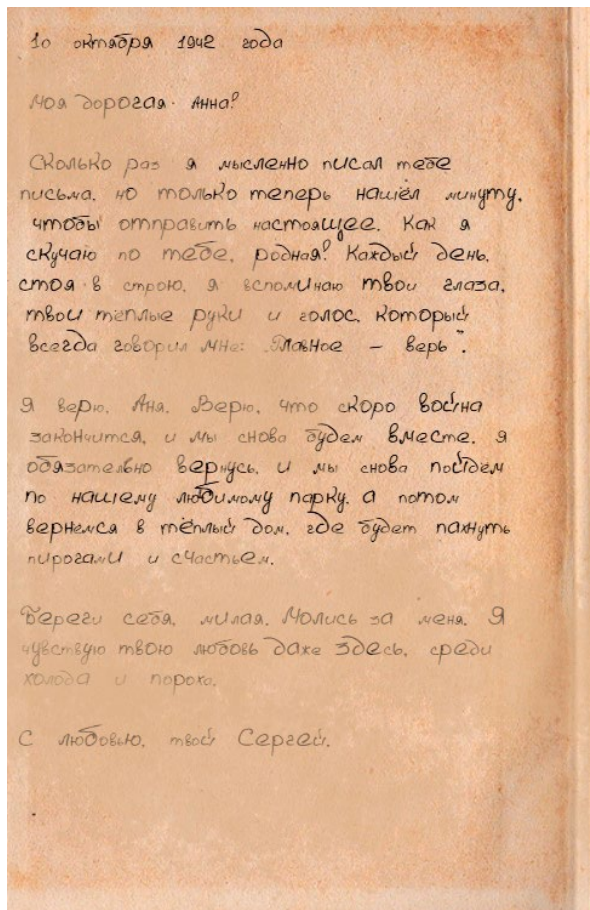 10 октября 1942 года
Моя дорогая Анна!
Сколько раз я мысленно писал тебе
письма, но только теперь нашёл минуту,
чтобы отправить настоящее. Как я
скучаю по тебе, родная! Каждый день,
стоя в строю, я вспоминаю твои глаза,
твои тёплые руки и голос, который
всегда говорил мне: „Главное – верь".
Я верю, Аня. Верю, что скоро война
закончится, и мы снова будем вместе. Я
обязательно вернусь, и мы снова пойдём
по нашему любимому парку, а потом
вернемся в тёплый дом, где будет пахнуть
пирогами и счастьем.
Береги себя, милая. Молись за меня. Я
чувствую твою любовь даже здесь, среди
холода и пороха.
С любовью, твой Сергей.